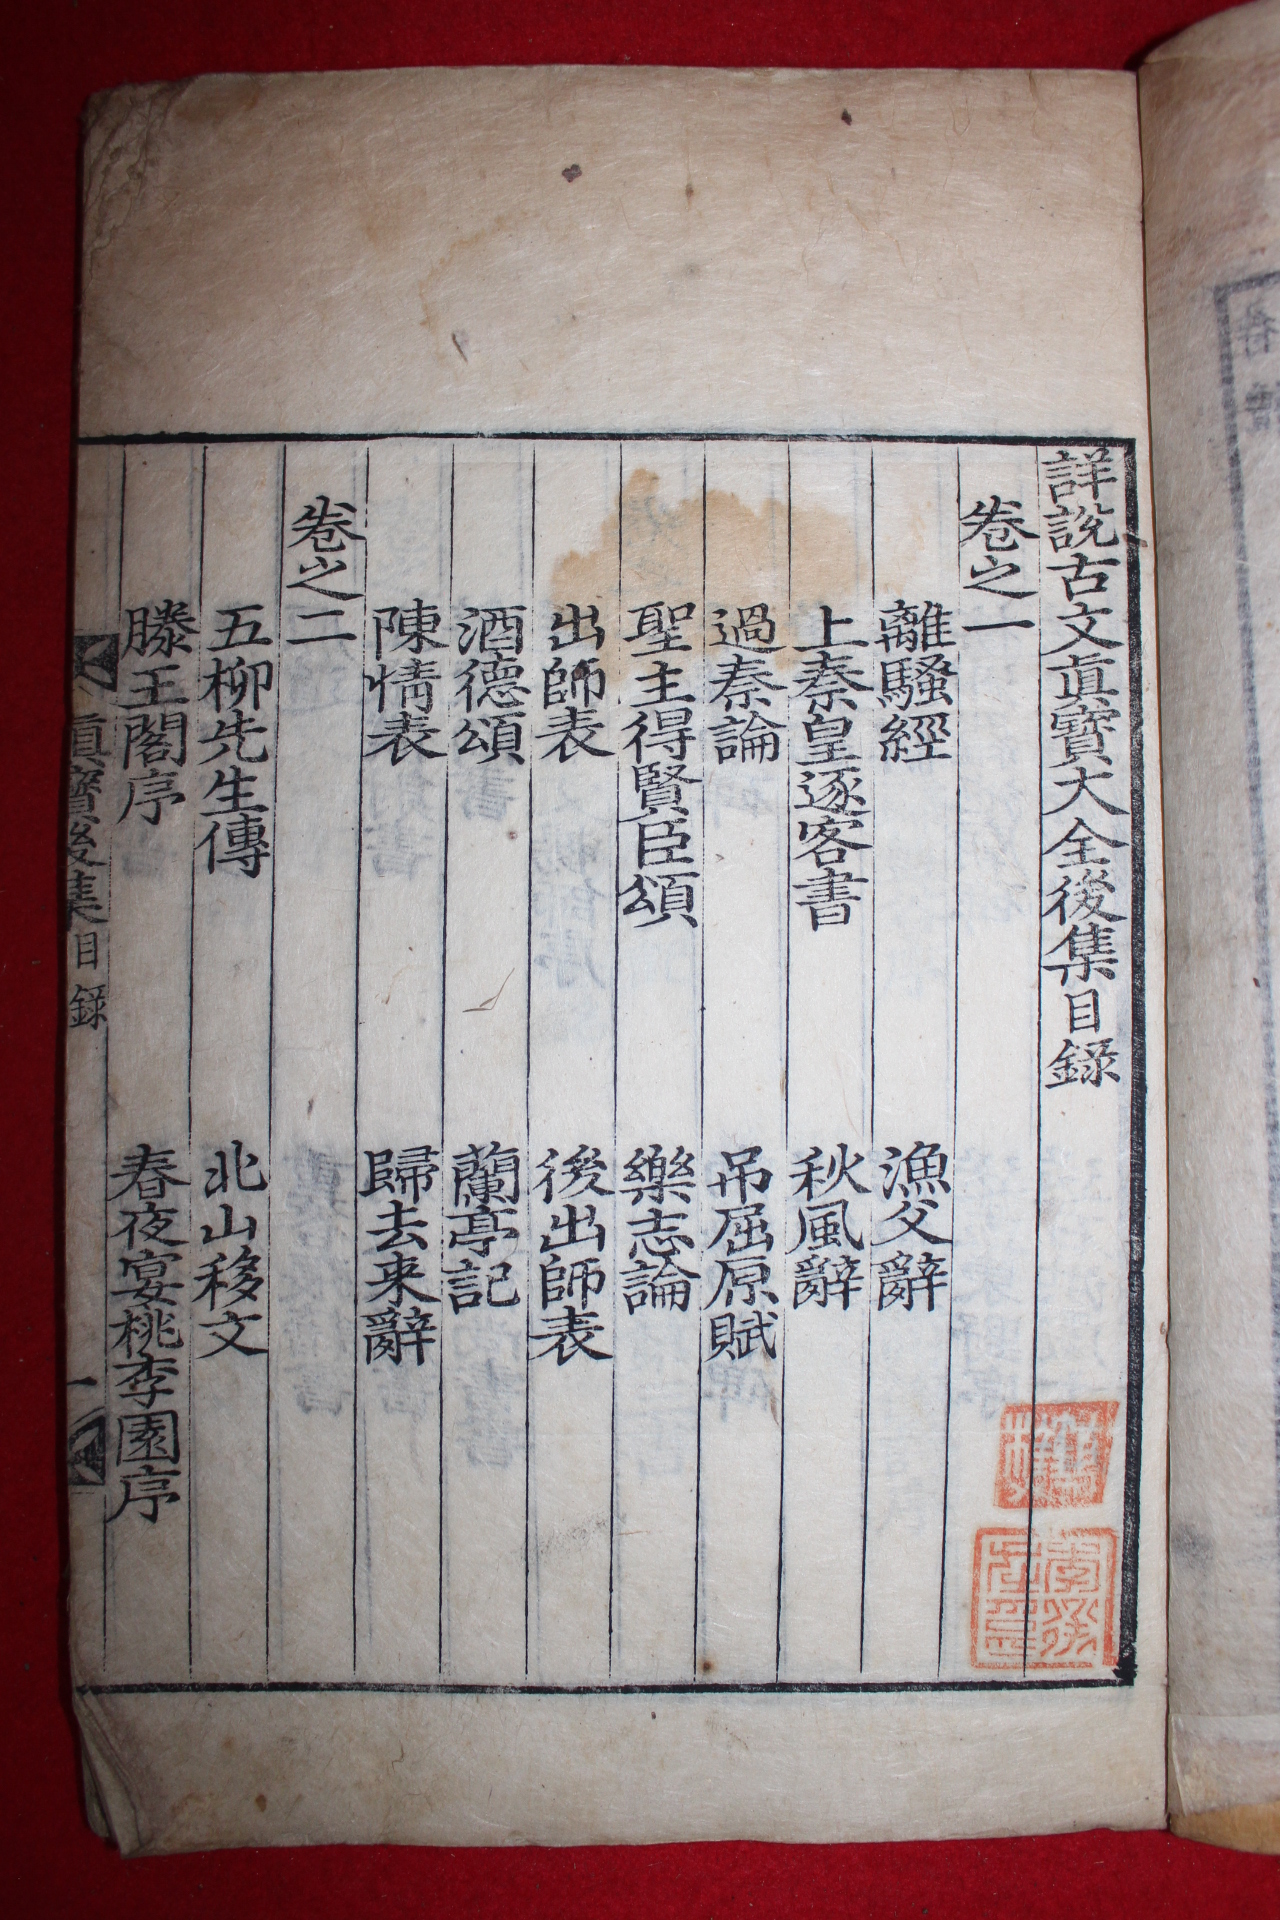 詳說古文眞寶大全後集目録
卷之一
離騷經　漁父辭
上秦皇逐客書　秋風辭
過秦論　吊屈原賦
聖主得賢臣頌　樂志論
出師表　後出師表
酒德頌　蘭亭記
陳情表　歸去来辭
卷之二
五柳先生傳　北山移文
滕王閣序　春夜宴桃李園序
眞寶後集目録　一